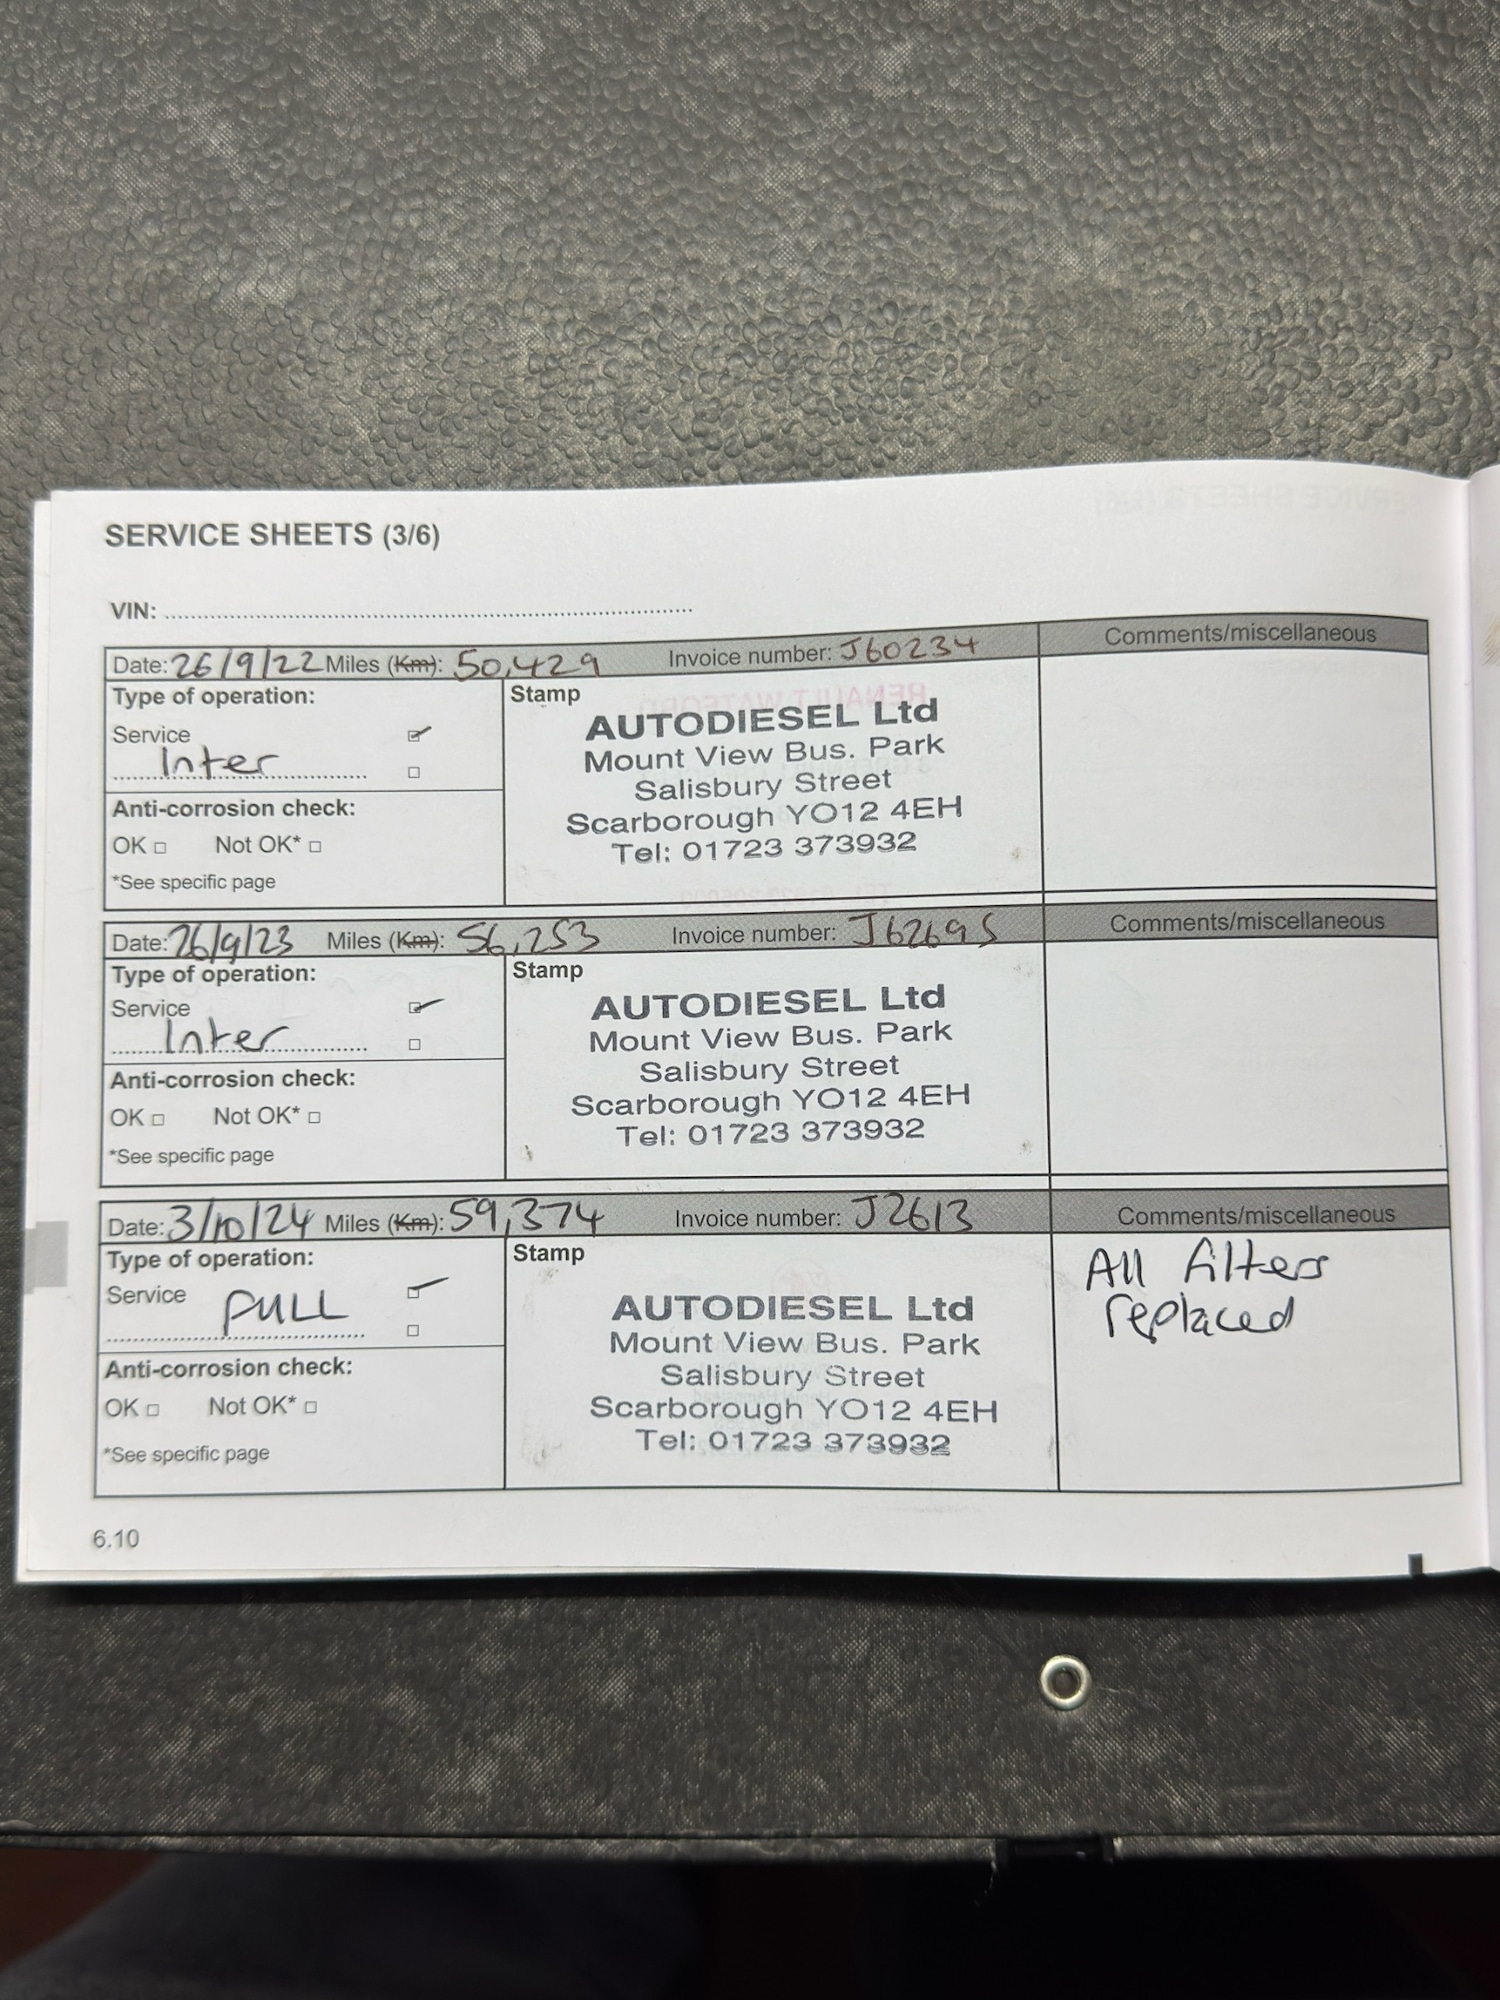 SERVICE SHEETS (3/6)
VIN:
Date: 26/9/22 Miles (Km): 50,429 Invoice number: J60234 Comments/miscellaneous
Type of operation:
Service
Inter
Anti-corrosion check:
OK Not OK*
*See specific page
Stamp
AUTODIESEL Ltd
Mount View Bus. Park
Salisbury Street
Scarborough YO12 4EH
Tel: 01723 373932
Date: 26/9/23 Miles (Km): 56,253 Invoice number: J62695 Comments/miscellaneous
Type of operation:
Service
Inter
Anti-corrosion check:
OK Not OK*
*See specific page
Stamp
AUTODIESEL Ltd
Mount View Bus. Park
Salisbury Street
Scarborough YO12 4EH
Tel: 01723 373932
Date: 3/10/24 Miles (Km): 59,374 Invoice number: J2613 Comments/miscellaneous
Type of operation:
Service FULL
Anti-corrosion check:
OK Not OK*
*See specific page
Stamp
AUTODIESEL Ltd
Mount View Bus. Park
Salisbury Street
Scarborough YO12 4EH
Tel: 01723 373932
All filters
replaced
6.10